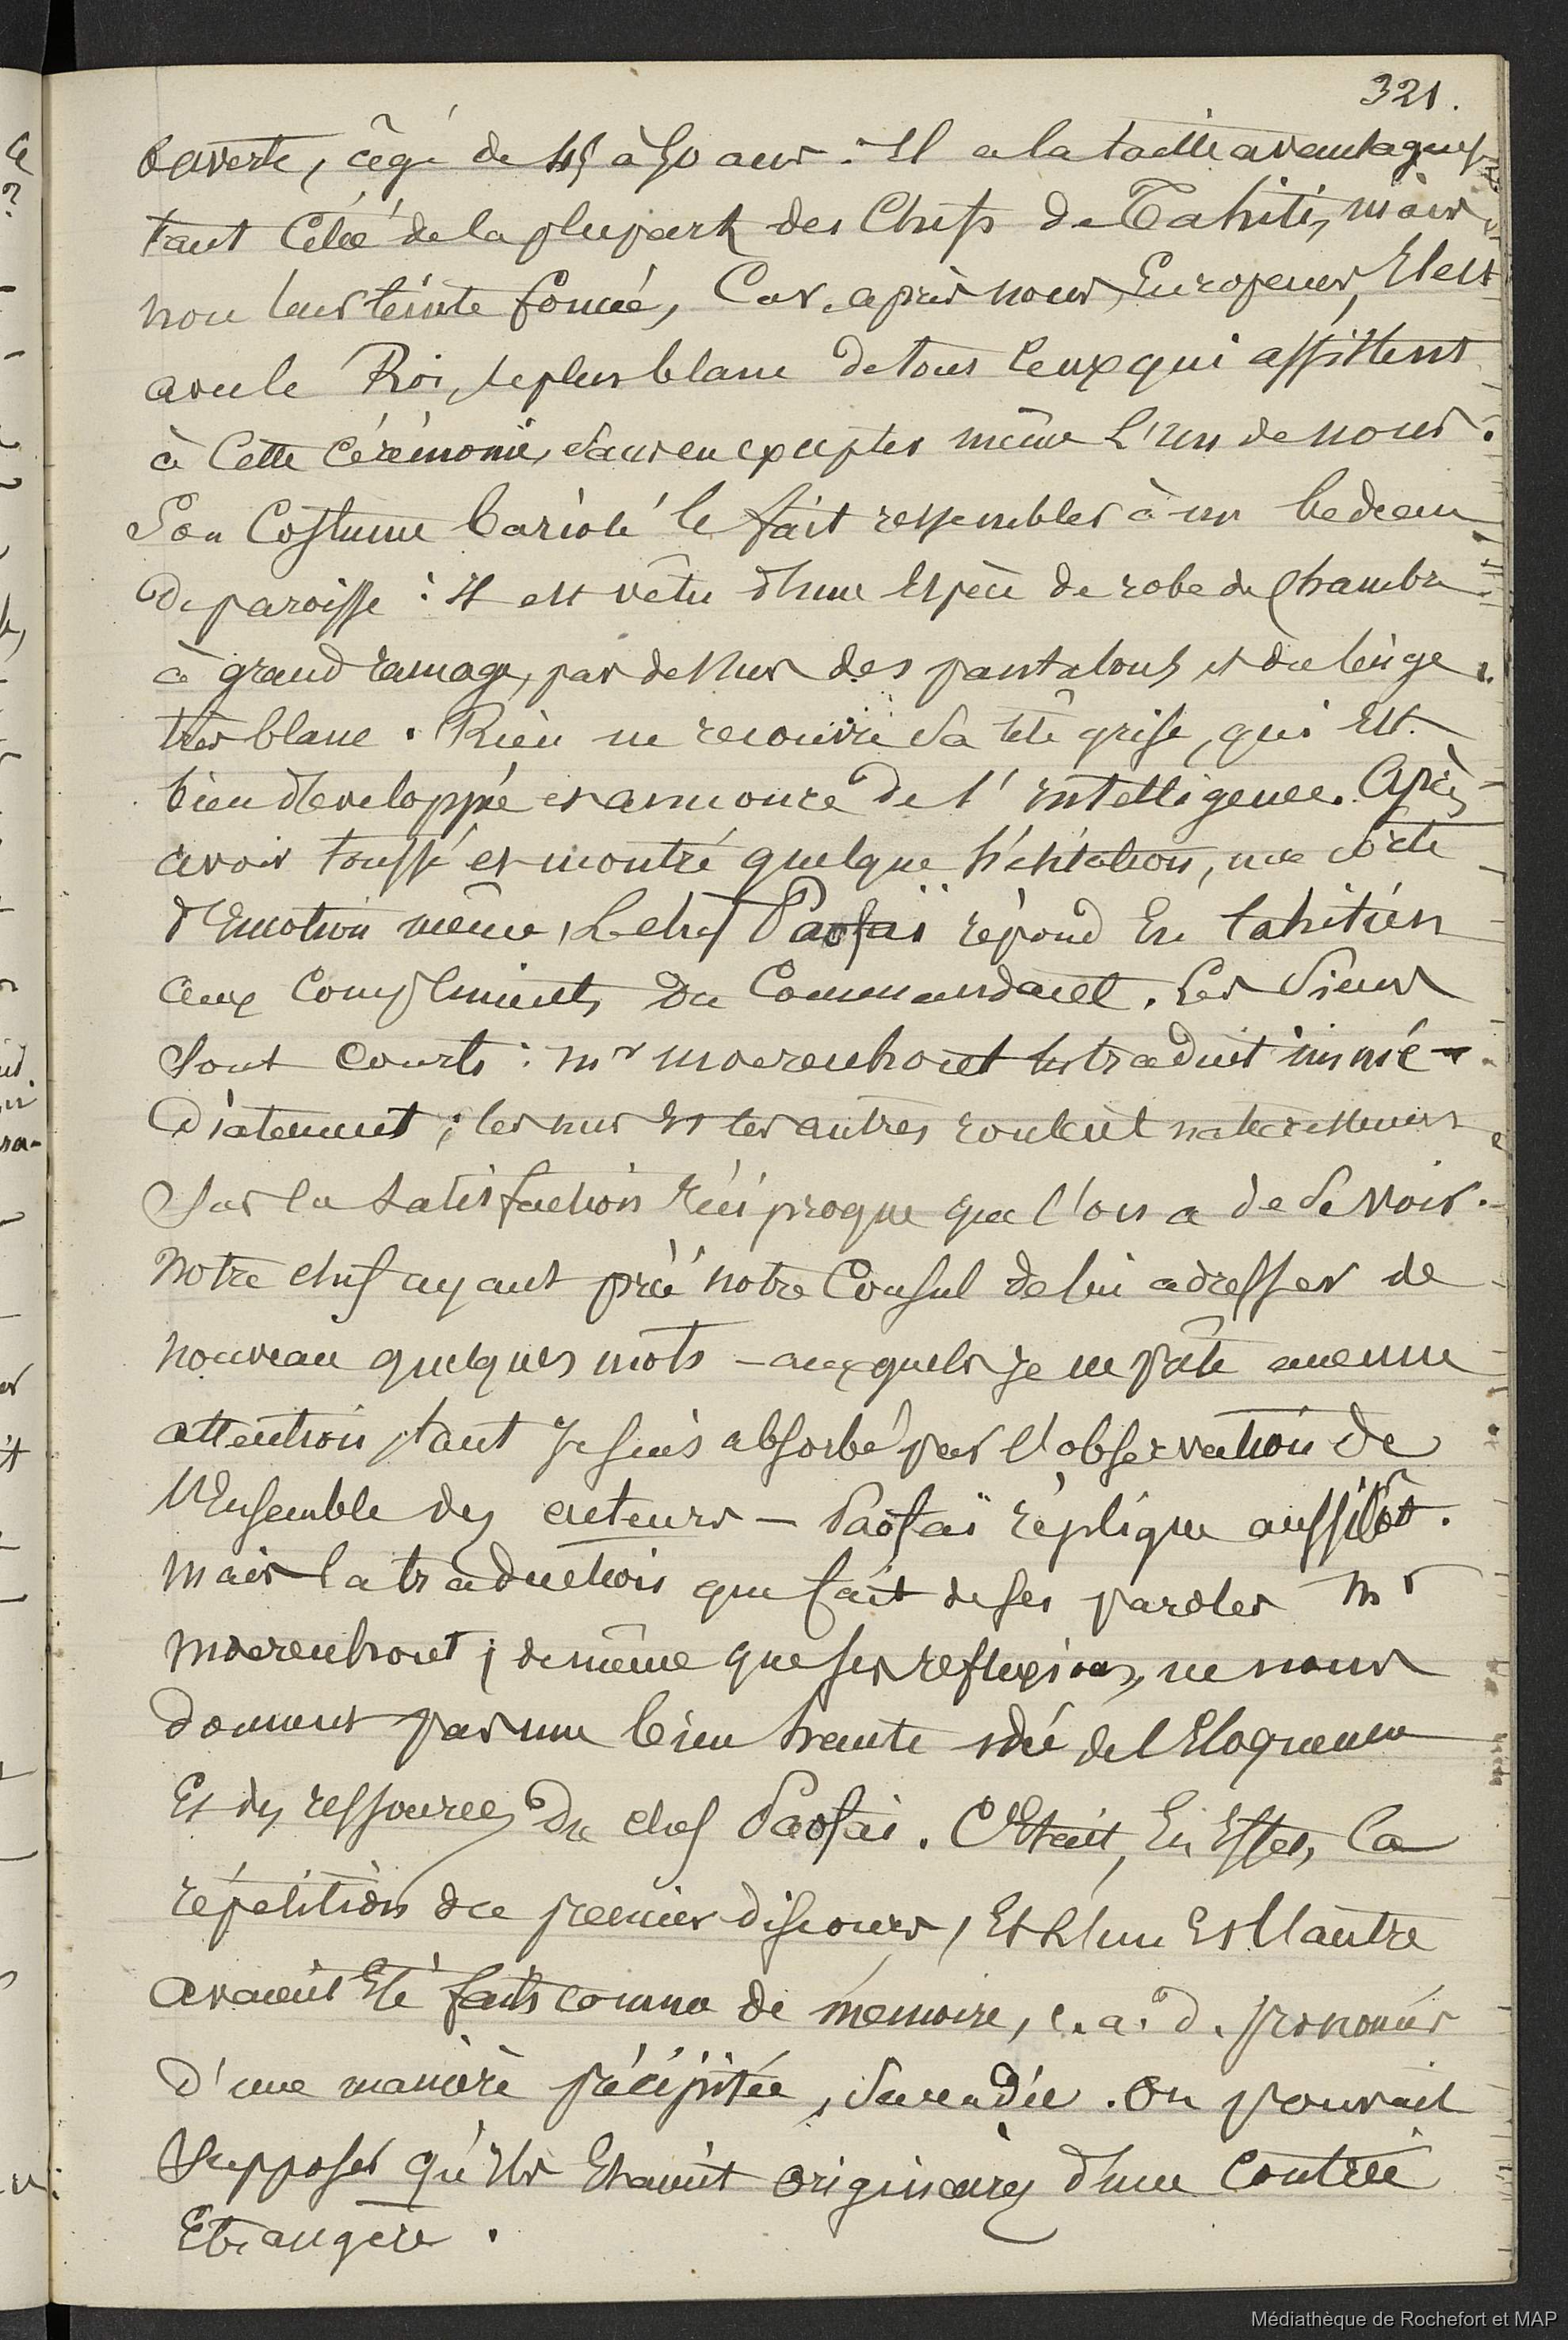 321.
ouverte, âgé de 45 à 50 ans. Il a la taille avantageuse
tant citée de la plupart des Chefs de Tahiti, mais
non leur teinte foncée, Car, après nous, Européens, Il est
avec le Roi, le plus blanc de tous ceux qui assistent
à Cette Cérémonie, sans en excepter même L'un de nous.
Son Costume bariolé le fait ressembler à un bedeau
de paroisse : Il est vêtu d'une Espèce de robe de Chambre
à grand ramage, par dessus des pantalons et du linge
très blanc. Rien ne recouvre sa tête grise, qui Est
bien développée et annonce de l'intelligence. Après
avoir toussé et montré quelque hésitation, une sorte
d'Emotion même, Le chef Paofaï répond En tahitien
aux Compliments du Commandant. Les Siens
sont courts : Mr Moerenhout les traduit immé-
diatement ; les uns Et les autres roulent naturellement
Sur la satisfaction réciproque que l'on a de se voir.
Notre chef ayant prié notre Consul de lui adresser de
nouveau quelques mots - auxquels je ne prête aucune
attention, tant Je suis absorbé par l'observation de
l'Ensemble des acteurs - Paofaï réplique aussitôt.
Mais la traduction que fait de ses paroles Mr
Moerenhout, de même que ses reflexions, ne nous
donnent pas une bien haute idée de l'Eloquence
Et des ressources du chef Paofaï. C'Etait, En Effet, la
répétition du premier discours, Et L'un Et l'autre
avaient Eté faits comme de mémoire, c. a. d. prononcés
d'une manière précipitée, saccadée. On pouvait
Supposer qu'Ils Etaient originaires d'une Contrée
Etrangère.
Médiathèque de Rochefort et MAP